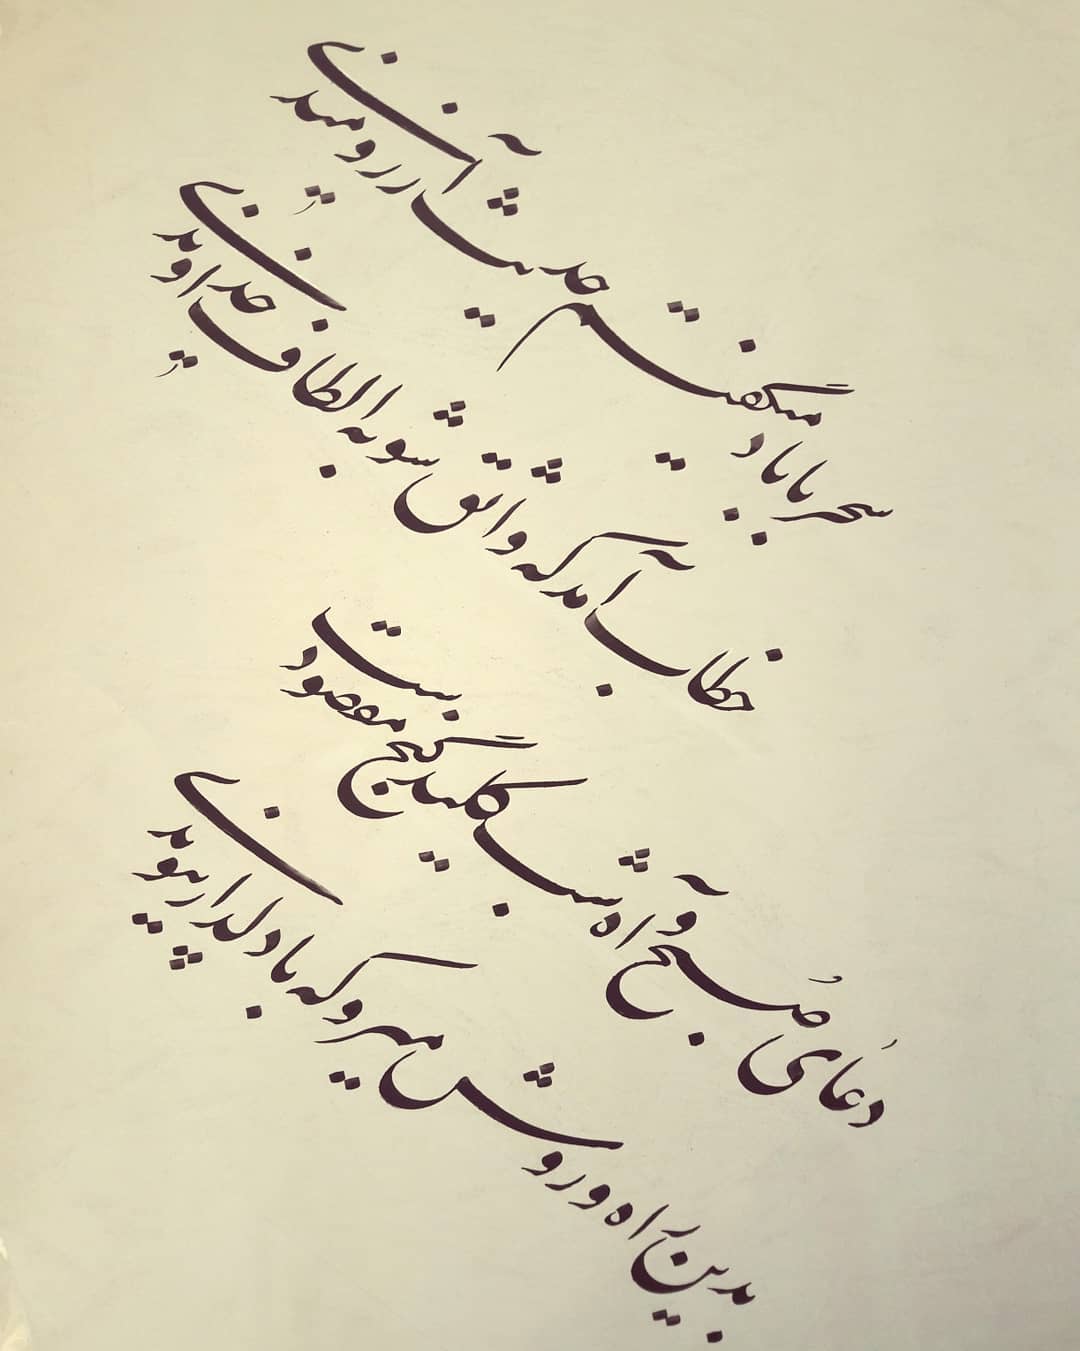 سحر با باد میگفتم حدیث آرزومندی
خطاب آمد که واثق شو به الطاف خداوندی
دعای صُبح و آه شب کلید گنج مقصود است
بدین راه و روش میرو که با دلدار پیوندی